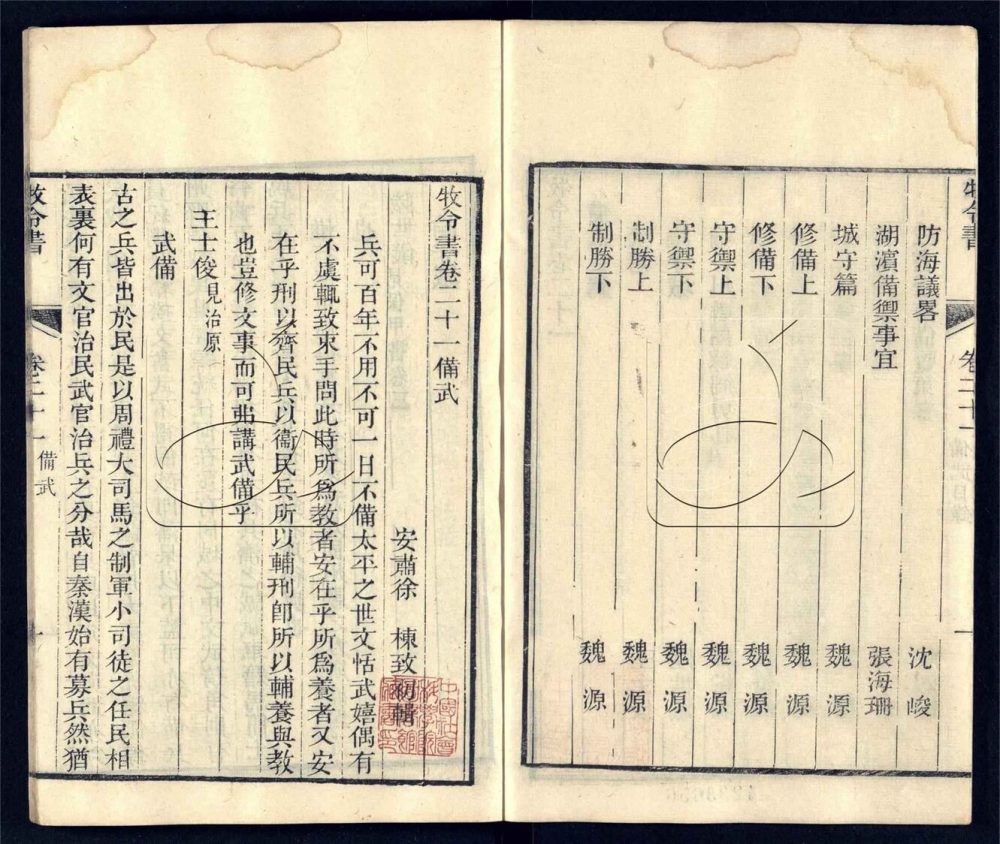 牧令書
卷二十一
一
防海議畧 沈峻
湖濱備禦事宜 張海珊
城守篇 魏源
修備上 魏源
修備下 魏源
守禦上 魏源
守禦下 魏源
制勝上 魏源
制勝下 魏源
牧令書卷二十一備武
安肅徐 棟致初輯
兵可百年不用不可一日不備太平之世文恬武嬉偶有
不虞輒致束手問此時所爲教者安在乎所爲養者又安
在乎刑以齊民兵以衞民兵所以輔刑卽所以輔養與教
也豈修文事而可弗講武備乎
王士俊見治原
武備
古之兵皆出於民是以周禮大司馬之制軍小司徒之任民相
表裏何有文官治民武官治兵之分哉自秦漢始有募兵然猶
牧令書
卷二十一
備武